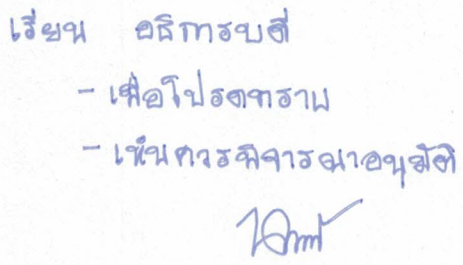 เรียน อธิการบดี
- เพื่อโปรดทราบ
- เห็นควรพิจารณาอนุมัติ